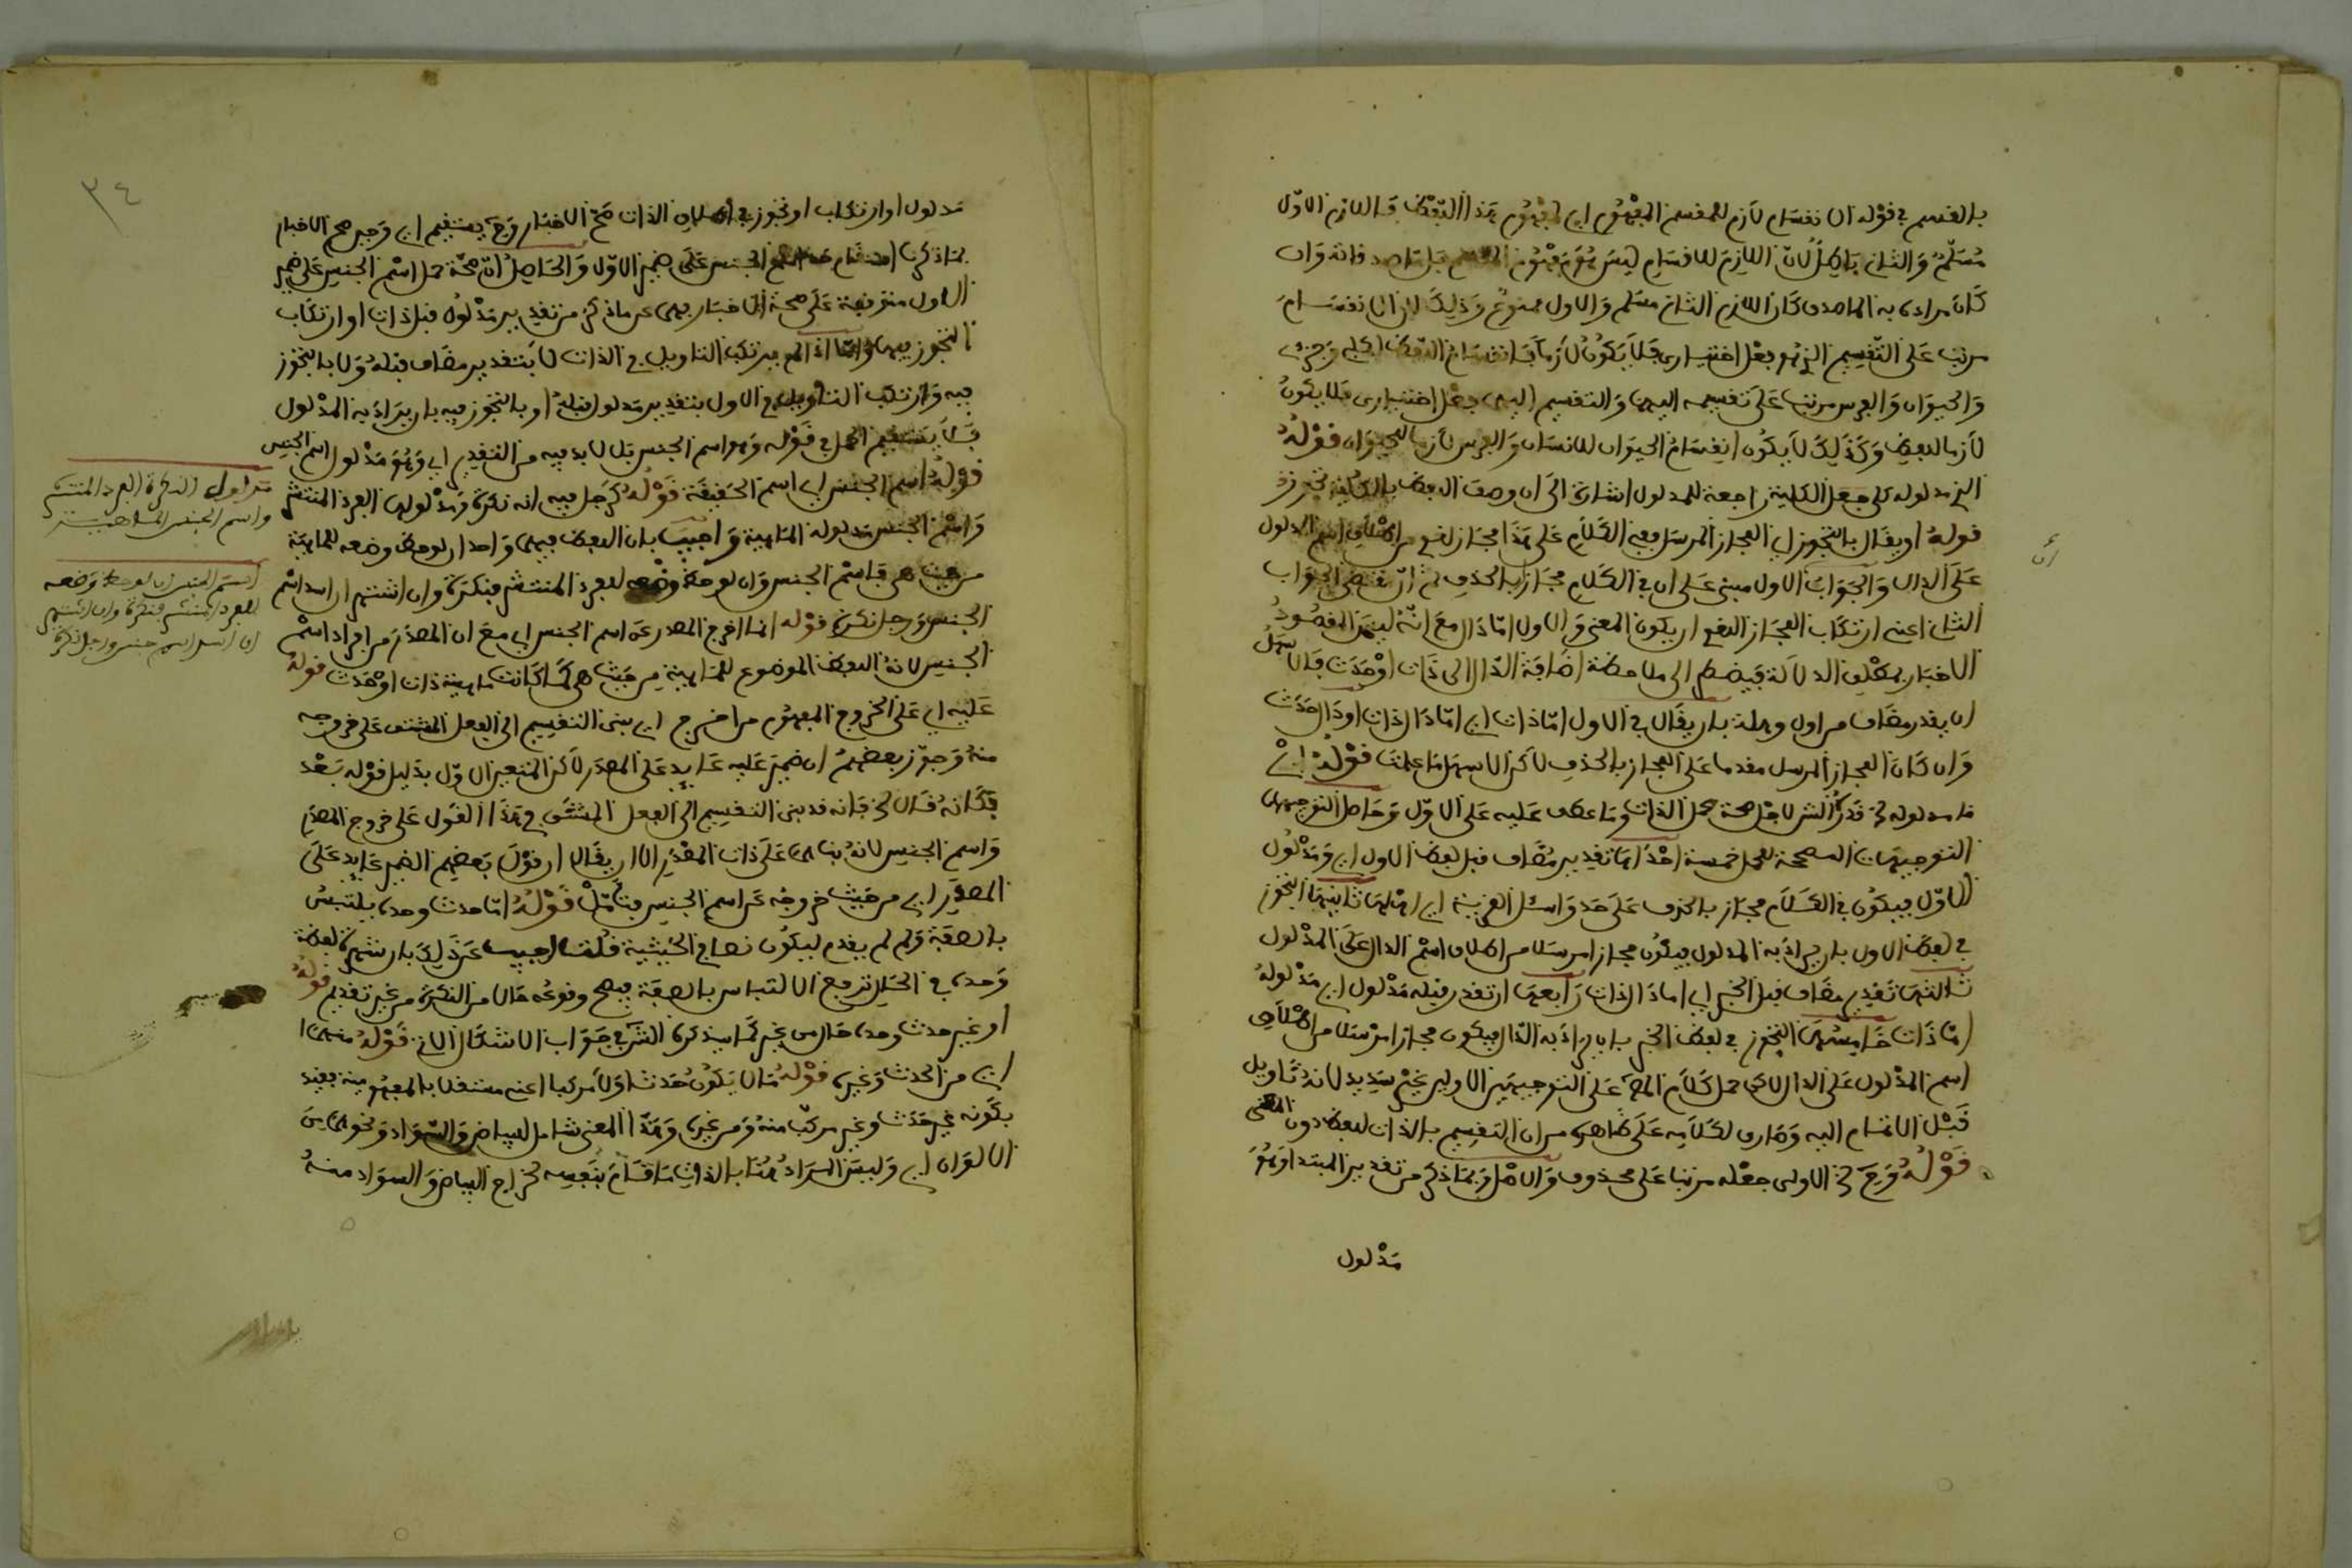 بالقسم في قوله ان انقسام لازم للمقسم المفهوم اي لمفهوم هذا اللفظ فاللازم الاول
مسلم والثاني باطل لان اللازم للاقسام ليس هو مفهوم المقسم بل ماصدقاته وان
كان مراده به الماصدق كان اللازم الثاني مسلم والاول ممنوع وذلك لان الانقسام
مرتب على التقسيم الذي هو فعل اختياري فلا يكون لازما فانقسام اللفظ الى كلي وجزئي
والحيوان والفرس مرتب على تقسيمه اليهما والتقسيم اليهما فعل اختياري فلا يكون
لازما للفظ وكذلك لا يكون انقسام الحيوان للانسان والفرس لازما للحيوان قوله
الخ مدلوله كلي جعل الكلية راجعة للمدلول اشارة الى ان وصف اللفظ بالكلية تجوز
قوله او يقال بالتجوز اي المجاز المرسل ففي الكلام على هذا مجاز لغوي من اطلاق اسم المدلول
على الدال والجواب الاول مبني على ان في الكلام مجاز بالحذف ثم ان مقتضى الجواب
الثاني اعني ارتكاب المجاز اللغوي ان يكون المعنى والاول اما دال مع انه ليس المقصود
الاخبار بمطلق الدلالة فيضطر الى ملاحظة اضافة الدال الى ذات او حدث فالاسهل
ان يقدر مضاف من اول وهلة بان يقال في الاول اما ذات اي اما دال ذات او دال حدث
وان كان المجاز المرسل مقدما على المجاز بالحذف لاكن الاسهل ما علمت قوله اي
ما مدلوله الخ قدر الش لاجل صحة حمل الذات وما عطف عليه على الاول وحاصل التوجيهات
التوجيهات المصححة للحمل خمسة احدها تقدير مضاف قبل لفظ الاول اي ومدلول
الاول فيكون في الكلام مجاز بالحذف على حد واسئل القرية اي اهلها ثانيها التجوز
في لفظ الاول بان يراد به المدلول فيكون مجازا مرسلا من اطلاق اسم الدال على المدلول
ثالثها تقدير مضاف قبل الخبر اي اما دال ذات رابعها ان تقدر قبله مدلول اي مدلوله
اما ذات خامسها التجوز في لفظ الخبر بان يراد به الدال فيكون مجازا مرسلا من اطلاق
اسم المدلول على الدال لاكن حمل كلام المص على التوجيهين الاولين غير سديد لانه تاويل
قبل الانتهاء اليه وصارف لكلامه على ظاهره من ان التقسيم بالذات للفظ دون المعنى
قوله وح الخ الاولى جعله مرتبا على محذوف والاصل وبما ذكر من تقدير المبتدا وهو
مدلول
ان
٣٤
مدلول او ارتكاب او تجوز في اطلاق الذات صح الاخبار وح يستقيم اي وحين صح الاخبار
بما ذكرنا استقام حمل اسم الجنس على ضمير الاول والحاصل ان صحة حمل اسم الجنس على ضمير
الاول متوقفة على صحة الاخبار فيما عن ما ذكر من تقدير مدلول قبل ذات او ارتكاب
التجوز فيهما واما اذا لم يرتكب التاويل في الذات لا بتقدير مضاف قبله ولا بالتجوز
فيه وارتكب التاويل في الاول بتقدير مدلول قبله او بالتجوز فيه بان يراد به المدلول
فلا يستقيم الحمل في قوله وهو اسم الجنس بل لا بد فيه من التقدير اي وهو مدلول اسم الجنس
قوله اسم الجنس اي اسم الحقيقة قوله كرجل فيه انه نكرة ومدلولها الفرد المنتشر
واسم الجنس مدلوله الماهية واجيب بان اللفظ فيهما واحد ان لوحظ وضعه للماهية
من حيث هي فاسم الجنس وان لوحظ وضعه للفرد المنتشر فنكرة وان اشتهر ان اسد اسم
الجنس ورجل نكرة قوله انما اخرج المصدر عن اسم الجنس اي مع ان المصدر من افراد اسم
الجنس لانه اللفظ الموضوع للماهية من حيث هي كما كانت ماهية ذات او حدث قوله
عليه اي على الخروج المفهوم من اخرج اي بنى التقسيم الى الفعل المشتق على خروجه
منه وجوز بعضهم ان ضمير عليه عايد على المصدر لاكن المتعين الاول بدليل قوله بعد
فكانه قال الخ فانه قد بنى التقسيم الى الفعل المشتق في هذا القول على خروج المصدر
واسم الجنس لانه بناها على ذات المصدر الا ان يقال ان قول بعضهم الضمير عايد على
المصدر اي من حيث خروجه عن اسم الجنس فتامل قوله اما حدث وحده يلتبس
بالصفة ولم لم يقدم ليكون نصا في الحيثية قلت اجيب عن ذلك بان شهرة لفظة
وحده في الحال ترفع الالتباس بالصفة فيصح وقوعه حالا من النكرة من غير تقديم قوله
او غير حدث وحده حال من غير كما سيذكره الش في جواب الاشكال الاتي قوله منهما
اي من الحدث وغيره قوله ما لا يكون حدثا ولا مركبا اعني مستقلا بالمفهومية يفيد
بكونه غير حدث وغير مركب منه ومن غيره وهذا المعنى شامل للبياض والسواد ونحوهما من
الالوان اي وليس المراد هنا بالذات ما قام بنفسه لخراج البياض والسواد منه
مدلول النكرة الفرد المنتشر
واسم الجنس الماهية
اسم الجنس ان لوحظ وضعه
للفرد المنتشر فنكرة وان اشتهر
ان اسد اسم جنس ورجل نكرة